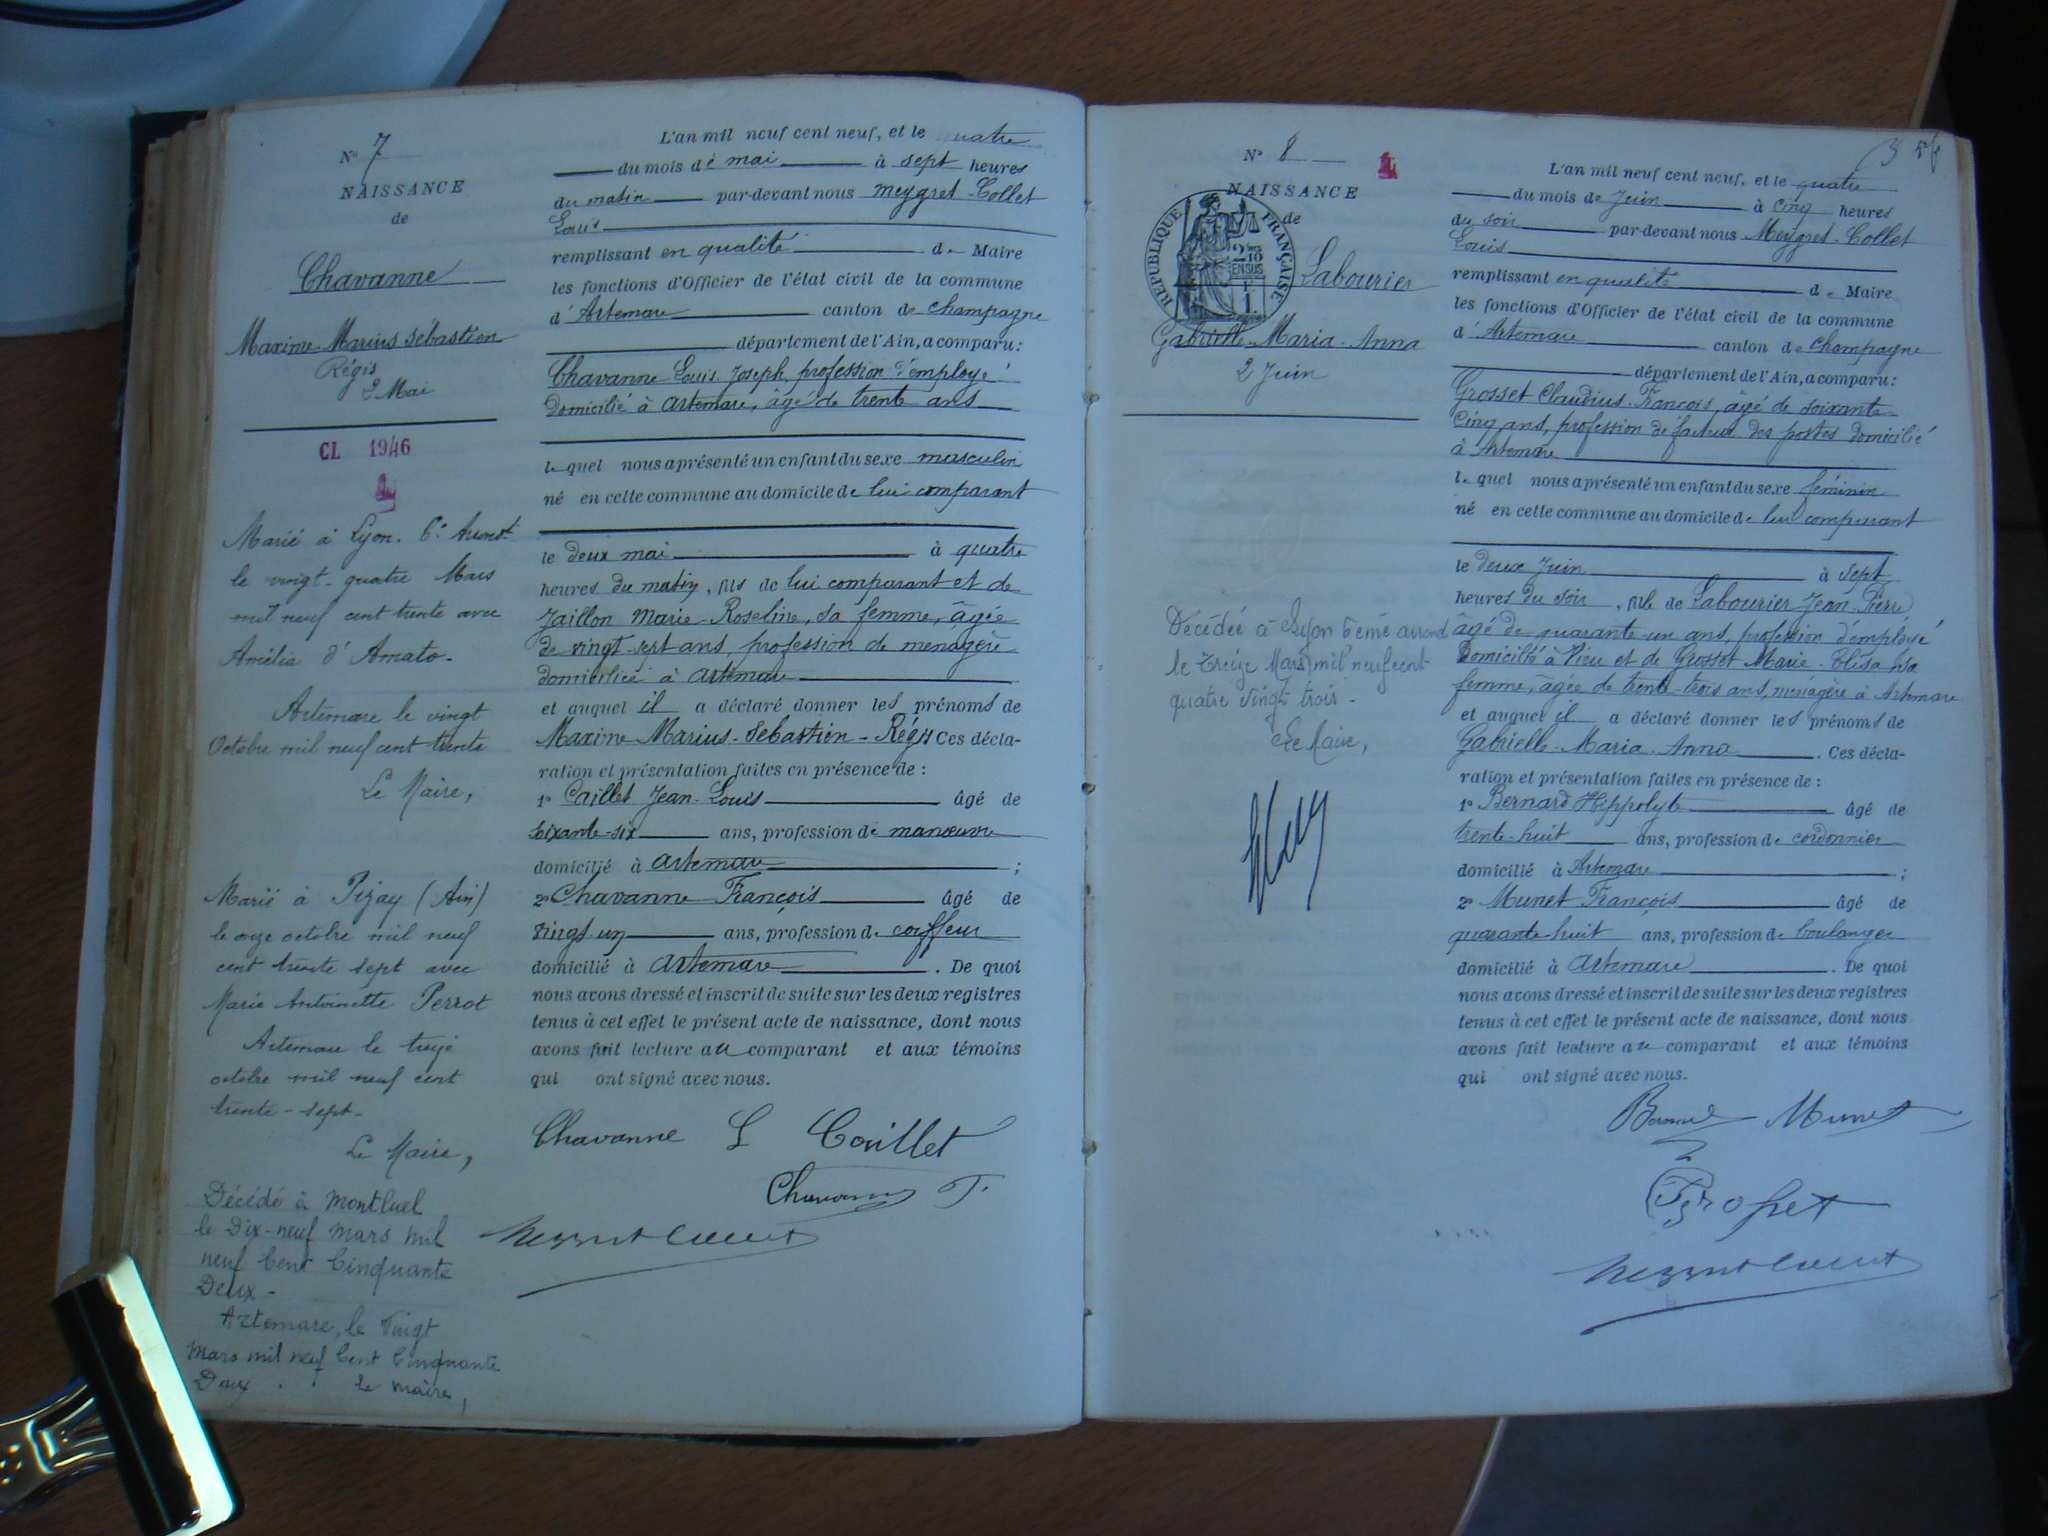 N° 7
NAISSANCE
de
Chavanne
Maxime Marius Sébastien
Régis
2 Mai
CL 1946
Marié à Lyon. 6e Arrondt
le vingt-quatre Mars
mil neuf cent trente avec
Amélia d'Amato.
Artemare le vingt
Octobre mil neuf cent trente
Le Maire,
Marié à Pizay (Ain)
le onze octobre mil neuf
cent trente sept avec
Marie Antoinette Perrot
Artemare le treize
octobre mil neuf cent
trente-sept.
Le Maire,
Décédé à Montluel
le Dix-neuf mars mil
neuf Cent Cinquante
Deux.
Artemare, le Vingt
mars mil neuf Cent Cinquante
Deux. le maire,
L'an mil neuf cent neuf, et le quatre
du mois de mai à sept heures
du matin par-devant nous Meygret-Collet
Louis
remplissant en qualité de Maire
les fonctions d'Officier de l'état civil de la commune
d'Artemare canton de Champagne
département de l'Ain, a comparu:
Chavanne Louis Joseph, profession d'employé
domicilié à Artemare, âgé de trente ans
lequel nous a présenté un enfant du sexe masculin
né en cette commune au domicile de lui comparant
le deux mai à quatre
heures du matin, fils de lui comparant et de
Jaillon Marie-Roseline, sa femme, âgée
de vingt-sept ans, profession de ménagère
domiciliée à Artemare
et auquel il a déclaré donner les prénoms de
Maxime Marius-Sébastien-Régis Ces décla-
ration et présentation faites en présence de:
1° Caillet Jean-Louis âgé de
soixante-six ans, profession de manœuvre
domicilié à Artemare;
2° Chavanne François âgé de
vingt un ans, profession de coiffeur
domicilié à Artemare. De quoi
nous avons dressé et inscrit de suite sur les deux registres
tenus à cet effet le présent acte de naissance, dont nous
avons fait lecture au comparant et aux témoins
qui ont signé avec nous.
Chavanne L Caillet
Chavanne F.
N° 8
NAISSANCE
de
RÉPUBLIQUE FRANÇAISE
2/10
EN SUS
Labourier
Gabrielle-Maria-Anna
2 Juin
Décédée à Lyon 6ème arrond
le treize Mars mil neuf cent
quatre vingt trois.
Le Maire,
L'an mil neuf cent neuf, et le quatre
du mois de Juin à cinq heures
du soir par-devant nous Meygret-Collet
Louis
remplissant en qualité de Maire
les fonctions d'Officier de l'état civil de la commune
d'Artemare canton de Champagne
département de l'Ain, a comparu:
Grosset Claudius-François, âgé de soixante-
cinq ans, profession de facteur des postes domicilié
à Artemare
lequel nous a présenté un enfant du sexe féminin
né en cette commune au domicile de lui comparant
le deux Juin à sept
heures du soir, fille de Labourier Jean-Pierre
âgé de quarante-un ans, profession d'employé
domicilié à Vieu et de Grosset Marie-Elisa sa
femme, âgée de trente-trois ans, ménagère à Artemare
et auquel il a déclaré donner les prénoms de
Gabrielle-Maria-Anna. Ces décla-
ration et présentation faites en présence de:
1° Bernard Hippolyte âgé de
trente-huit ans, profession de cordonnier
domicilié à Artemare;
2° Munet François âgé de
quarante-huit ans, profession de boulanger
domicilié à Artemare. De quoi
nous avons dressé et inscrit de suite sur les deux registres
tenus à cet effet le présent acte de naissance, dont nous
avons fait lecture au comparant et aux témoins
qui ont signé avec nous.
Bernard Munet
Grosset